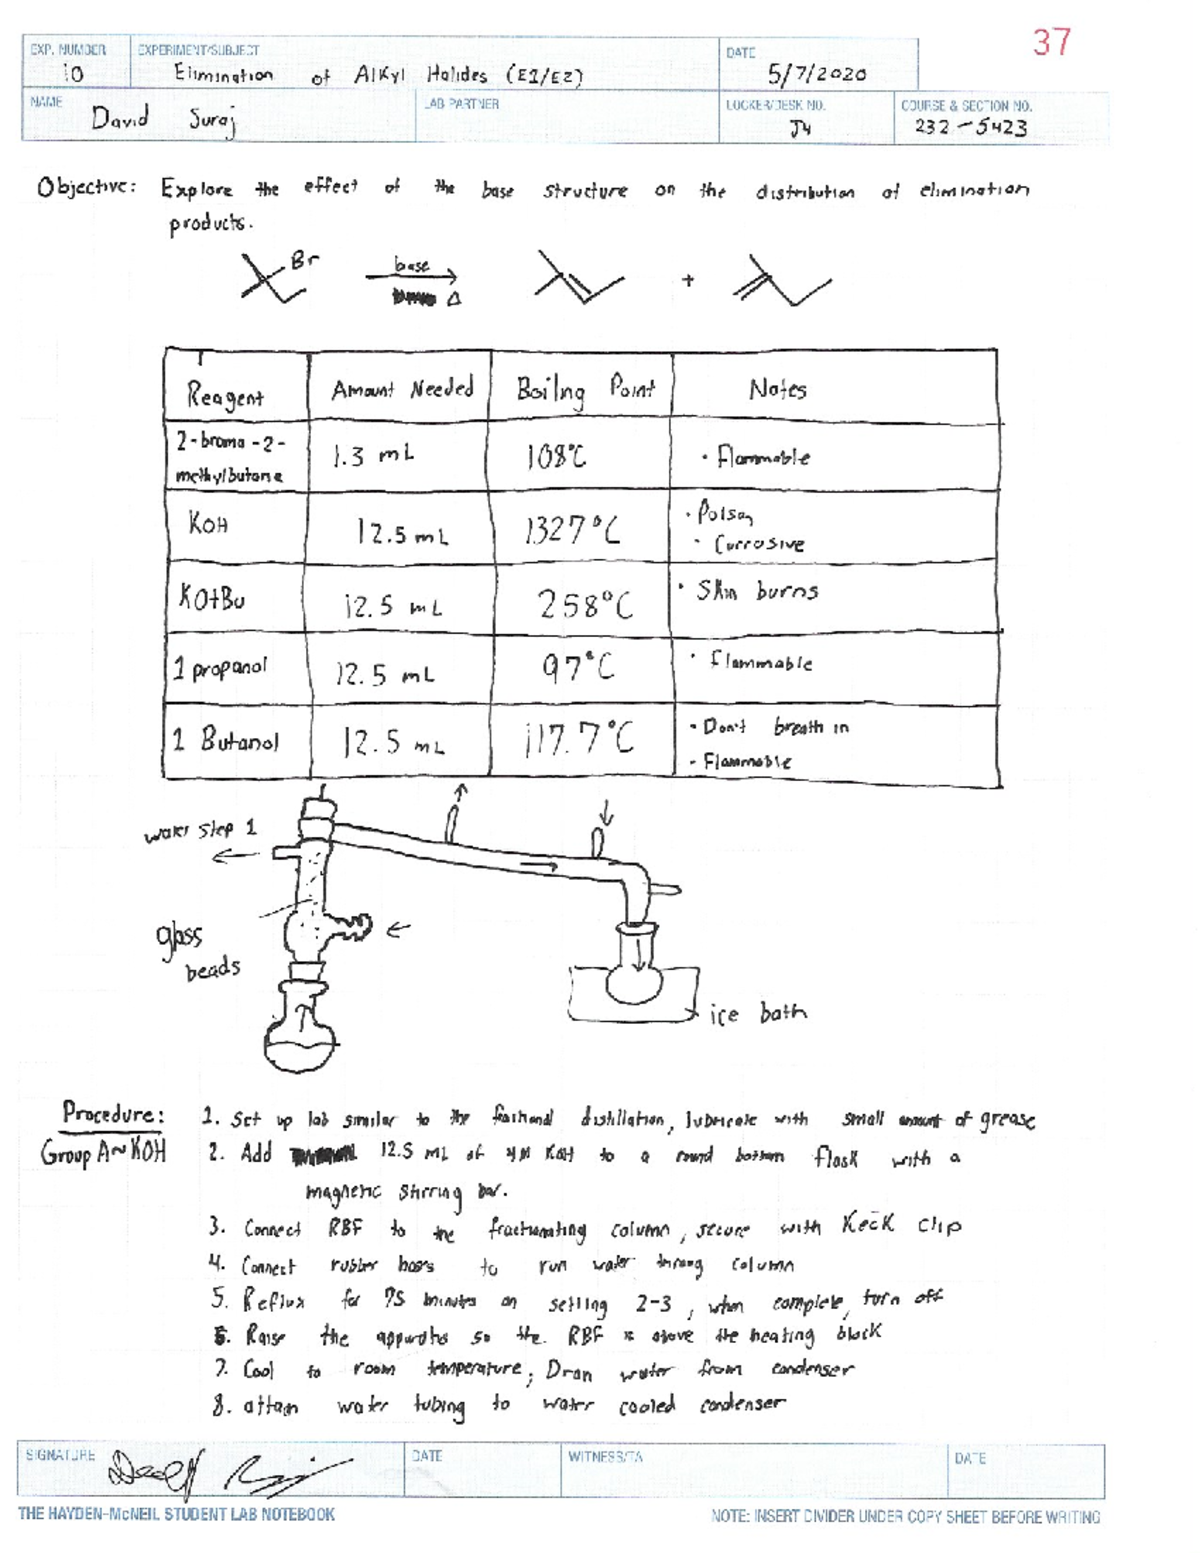 37
EXP. NUMBER EXPERIMENT/SUBJECT DATE
10 Elimination of Alkyl Halides (E1/E2) 5/7/2020
NAME LAB PARTNER LOCKER/DESK NO. COURSE & SECTION NO.
David Suraj J4 232-5423
Objective: Explore the effect of the base structure on the distribution of elimination
products.
Br
base
Δ
+
Reagent Amount Needed Boiling Point Notes
2-bromo-2-
methylbutane 1.3 mL 108°C • Flammable
KOH 12.5 mL 1327°C • Poison
• Corrosive
KOtBu 12.5 mL 258°C • Skin burns
1 propanol 12.5 mL 97°C • Flammable
1 Butanol 12.5 mL 117.7°C • Don't breath in
- Flammable
water step 1
glass
beads
ice bath
Procedure: 1. Set up lab similar to the distillation, lubricate with small amount of grease
Group A~KOH 2. Add 12.5 mL of 4M KOH to a round bottom flask with a
magnetic stirring bar.
3. Connect RBF to the fractionating column, secure with Keck clip
4. Connect rubber hoses to run water through column
5. Reflux for 75 minutes on setting 2-3, when complete, turn off
6. Raise the apparatus so the RBF is above the heating block
7. Cool to room temperature, Drain water from condenser
8. attach water tubing to water cooled condenser
SIGNATURE DATE WITNESS/TA DATE
THE HAYDEN-McNEIL STUDENT LAB NOTEBOOK NOTE: INSERT DIVIDER UNDER COPY SHEET BEFORE WRITING